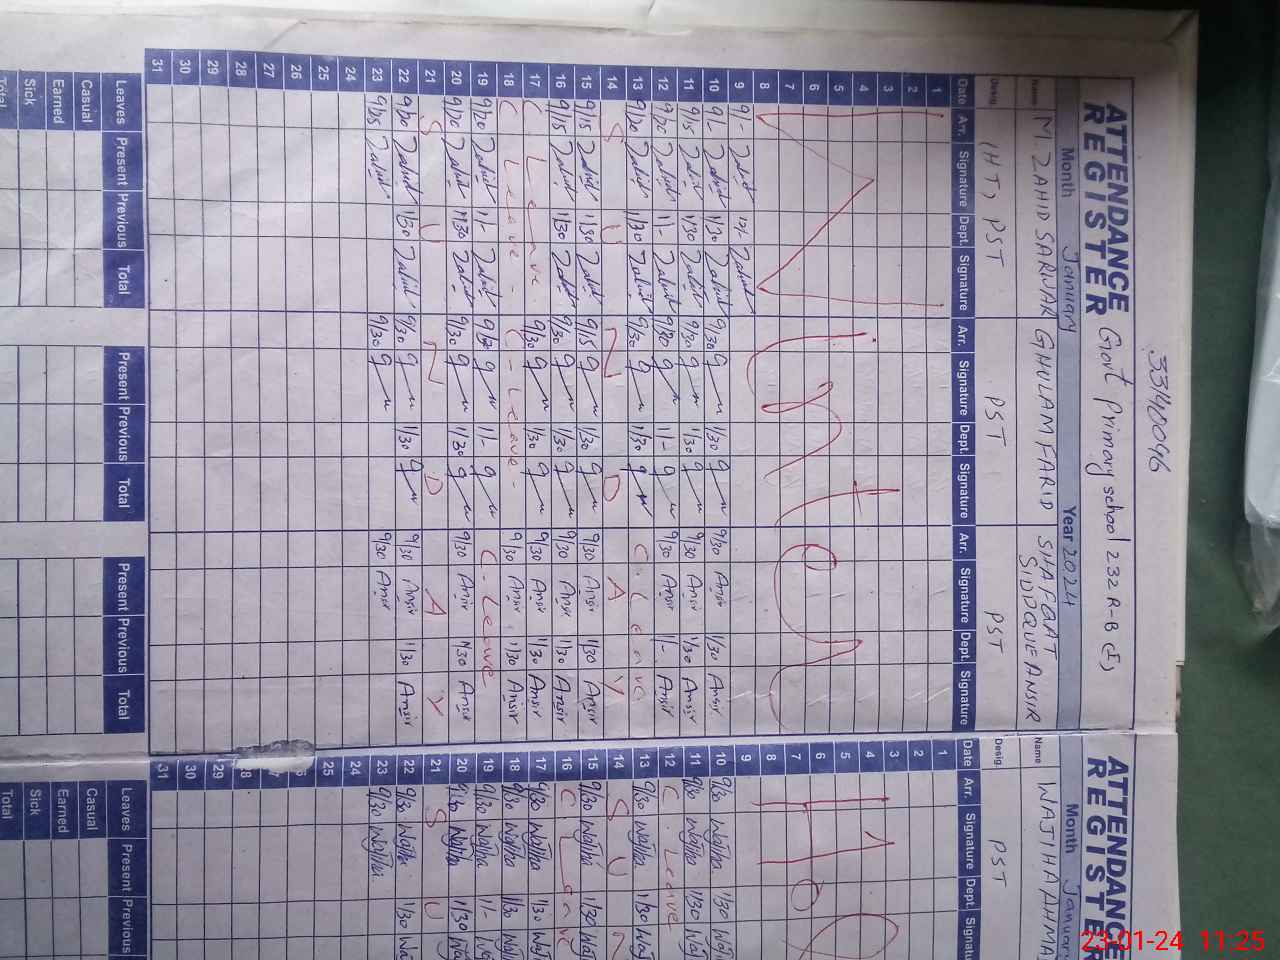 33140096
ATTENDANCE REGISTER Govt Primary school 232 R-B (I)
Month January Year 2024
Name M. ZAHID SARWAR GHULAM FARID SHAFQAT SIDDQUE ANSIR
Desig. (HT) PST PST PST
Date Arr. Signature Dept. Signature Arr. Signature Dept. Signature Arr. Signature Dept. Signature
1
2
3
4
5
6
7
8
Winter
9 9/- Zahid 12/- Zahid
10 9/- Zahid 1/30 Zahid 9/30 1/30 9/30 Ansir 1/30 Ansir
11 9/15 Zahid 1/30 Zahid 9/30 1/30 9/30 Ansir 1/30 Ansir
12 9/20 Zahid 1/- Zahid 9/30 1/- 9/30 Ansir 1/- Ansir
13 9/20 Zahid 1/30 Zahid 9/30 1/30 C. Leave
14 S U N D A Y
15 9/15 Zahid 1/30 Zahid 9/15 1/30 9/30 Ansir 1/30 Ansir
16 9/15 Zahid 1/30 Zahid 9/30 1/30 9/30 Ansir 1/30 Ansir
17 C. Leave 9/30 1/30 9/30 Ansir 1/30 Ansir
18 C. Leave - C - Leave - 9/30 Ansir 1/30 Ansir
19 9/20 Zahid 1/- Zahid 9/30 1/- C. Leave
20 9/20 Zahid 1/30 Zahid 9/30 1/30 9/30 Ansir 1/30 Ansir
21 S U N D A Y
22 9/20 Zahid 1/30 Zahid 9/30 1/30 9/30 Ansir 1/30 Ansir
23 9/25 Zahid 9/30 9/30 Ansir
24
25
26
27
28
29
30
31
Leaves Present Previous Total Present Previous Total Present Previous Total
Casual
Earned
Sick
Total
ATTENDANCE REGISTER
Month January
Name WAJIHA AHMA
Desig. PST
Date Arr. Signature Dept. Signature
1
2
3
4
5
6
7
8
9
10 9/30 Wajiha 1/30
11 9/30 Wajiha 1/30
12 C. Leave
13 9/30 Wajiha 1/30
14 S U N
15 9/30 Wajiha 1/30
16 C Leave
17 9/30 Wajiha 1/30
18 9/30 Wajiha 1/30
19 9/30 Wajiha 1/-
20 9/30 Wajiha 1/30
21 S U
22 9/30 Wajiha 1/30
23 9/30 Wajiha
24
25
28
29
30
31
Leaves Present Previous
Casual
Earned
Sick
Total
23-01-24 11:25